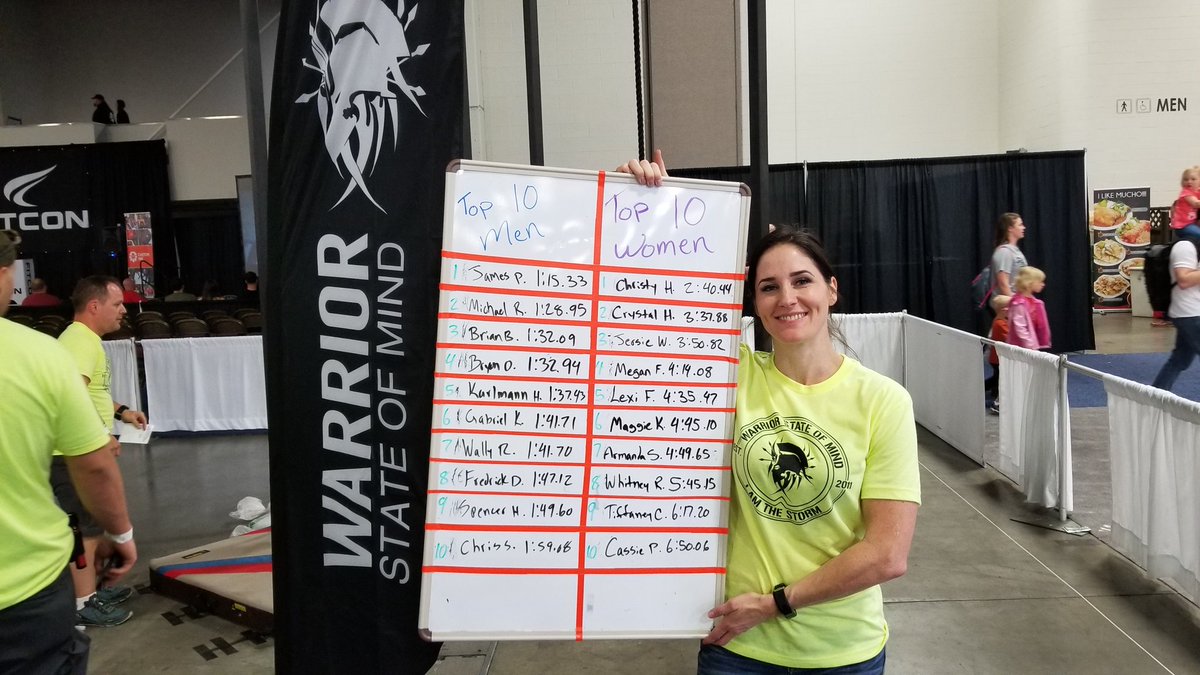 WARRIOR
STATE OF MIND
TCON
Top 10
Men
1 James P. 1:15.33
2 Michael R. 1:28.95
3 Brian B. 1:32.09
4 Bryan D. 1:32.94
5 Karlmann H. 1:37.93
6 Gabriel K. 1:41.71
7 Wally R. 1:41.70
8 Fredrick D. 1:47.12
9 Spencer H. 1:49.60
10 Chris S. 1:59.08
Top 10
Women
1 Christy H. 2:40.94
2 Crystal H. 3:37.88
3 Jessie W. 3:50.82
4 Megan F. 4:19.08
5 Lexi F. 4:35.97
6 Maggie K. 4:45.10
7 Armanda S. 4:49.65
8 Whitney R. 5:45.15
9 Tiffaney C. 6:17.20
10 Cassie P. 6:50.06
WARRIOR STATE OF MIND
EST
2011
I AM THE STORM
MEN
I LIKE MUCHO!!!